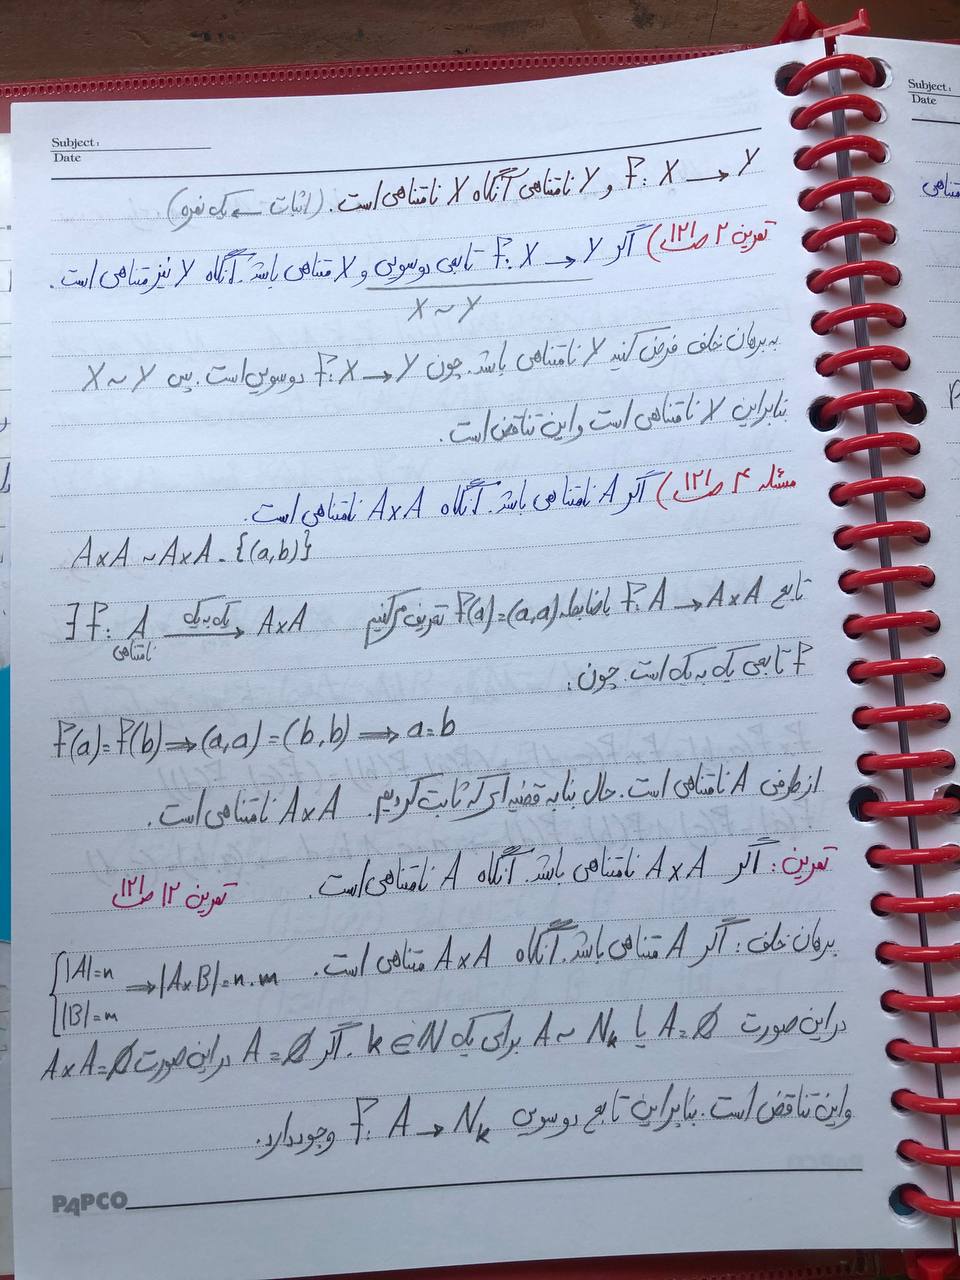 Subject:
Date
f: X → Y و Y نامتناهی آنگاه X نامتناهی است. (اثبات ← یک نمره)
تمرین ۲ ص ۱۲۱) اگر f: X → Y تابعی دوسویی و X متناهی باشد. آنگاه Y نیز متناهی است.
X ~ Y
به برهان خلف فرض کنید Y نامتناهی باشد. چون f: X → Y دوسویی است. پس X ~ Y
بنابراین X نامتناهی است و این تناقض است.
مسئله ۴ ص ۱۲۱) اگر A نامتناهی باشد. آنگاه A×A نامتناهی است.
A×A ~ A×A - {(a,b)}
تابع f: A → A×A باضابطه f(a)=(a,a) تعریف می‌کنیم
∃ f: A یک به یک → A×A
نامتناهی
f تابعی یک به یک است. چون:
f(a)=f(b) ⇒ (a,a)=(b,b) ⇒ a=b
از طرفی A نامتناهی است. حال بنا به قضیه ای که ثابت کردیم. A×A نامتناهی است.
تمرین: اگر A×A نامتناهی باشد. آنگاه A نامتناهی است. تمرین ۱۲ ص ۱۲۱
برهان خلف: اگر A متناهی باشد. آنگاه A×A متناهی است. { |A|=n |B|=m ⇒ |A×B|=n.m
در این صورت A=Ø یا A ~ Nk برای یک k∈N. اگر A=Ø در این صورت A×A=Ø
و این تناقض است. بنابراین تابع دوسویی f: A → Nk وجود دارد.
PAPCO
Subject:
Date